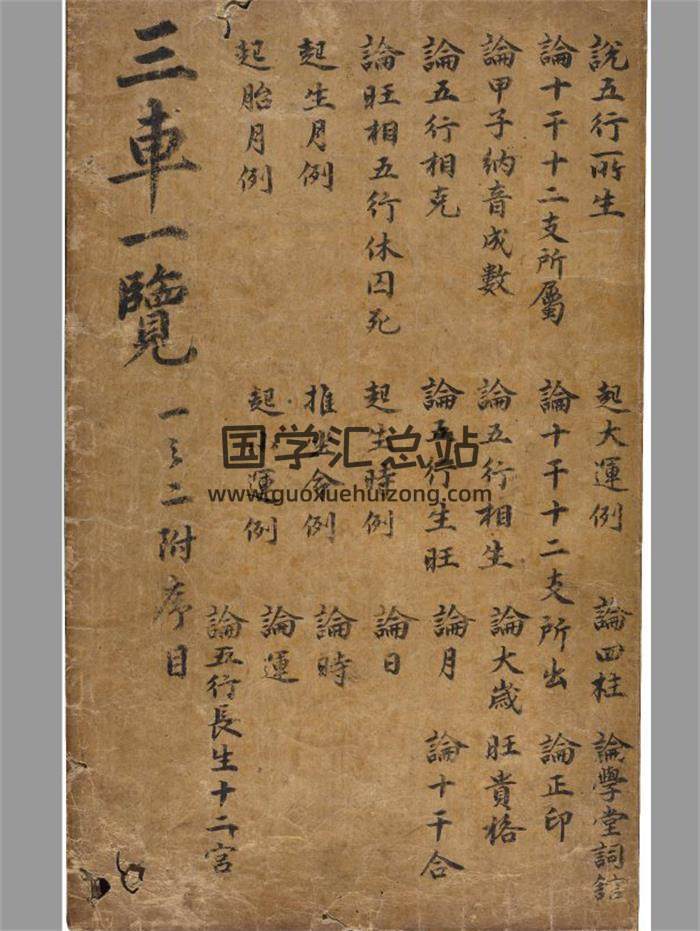 説五行所生 起大運例 論四柱 論學堂詞舘
論十干十二支所屬 論十干十二支所出 論正印
論甲子納音成數 論五行相生 論大歲 旺貴格
論五行相克 論五行生旺 論月 論十干合
論旺相五行休囚死 起生時例 論日
起生月例 推生命例 論時
起胎月例 起小運例 論運
論五行長生十二宮
三車一覽 一之二附序目
国学汇总站
www.guoxuehuizong.com